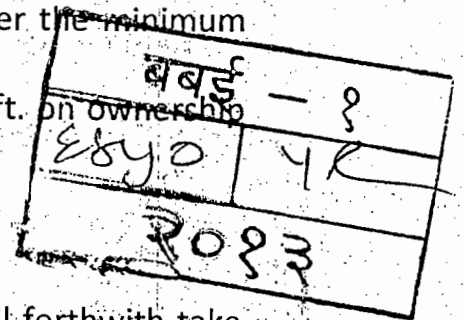 er the minimum
बबई - १
ft. on ownership
६४५० ५८
२०१३
l forthwith take